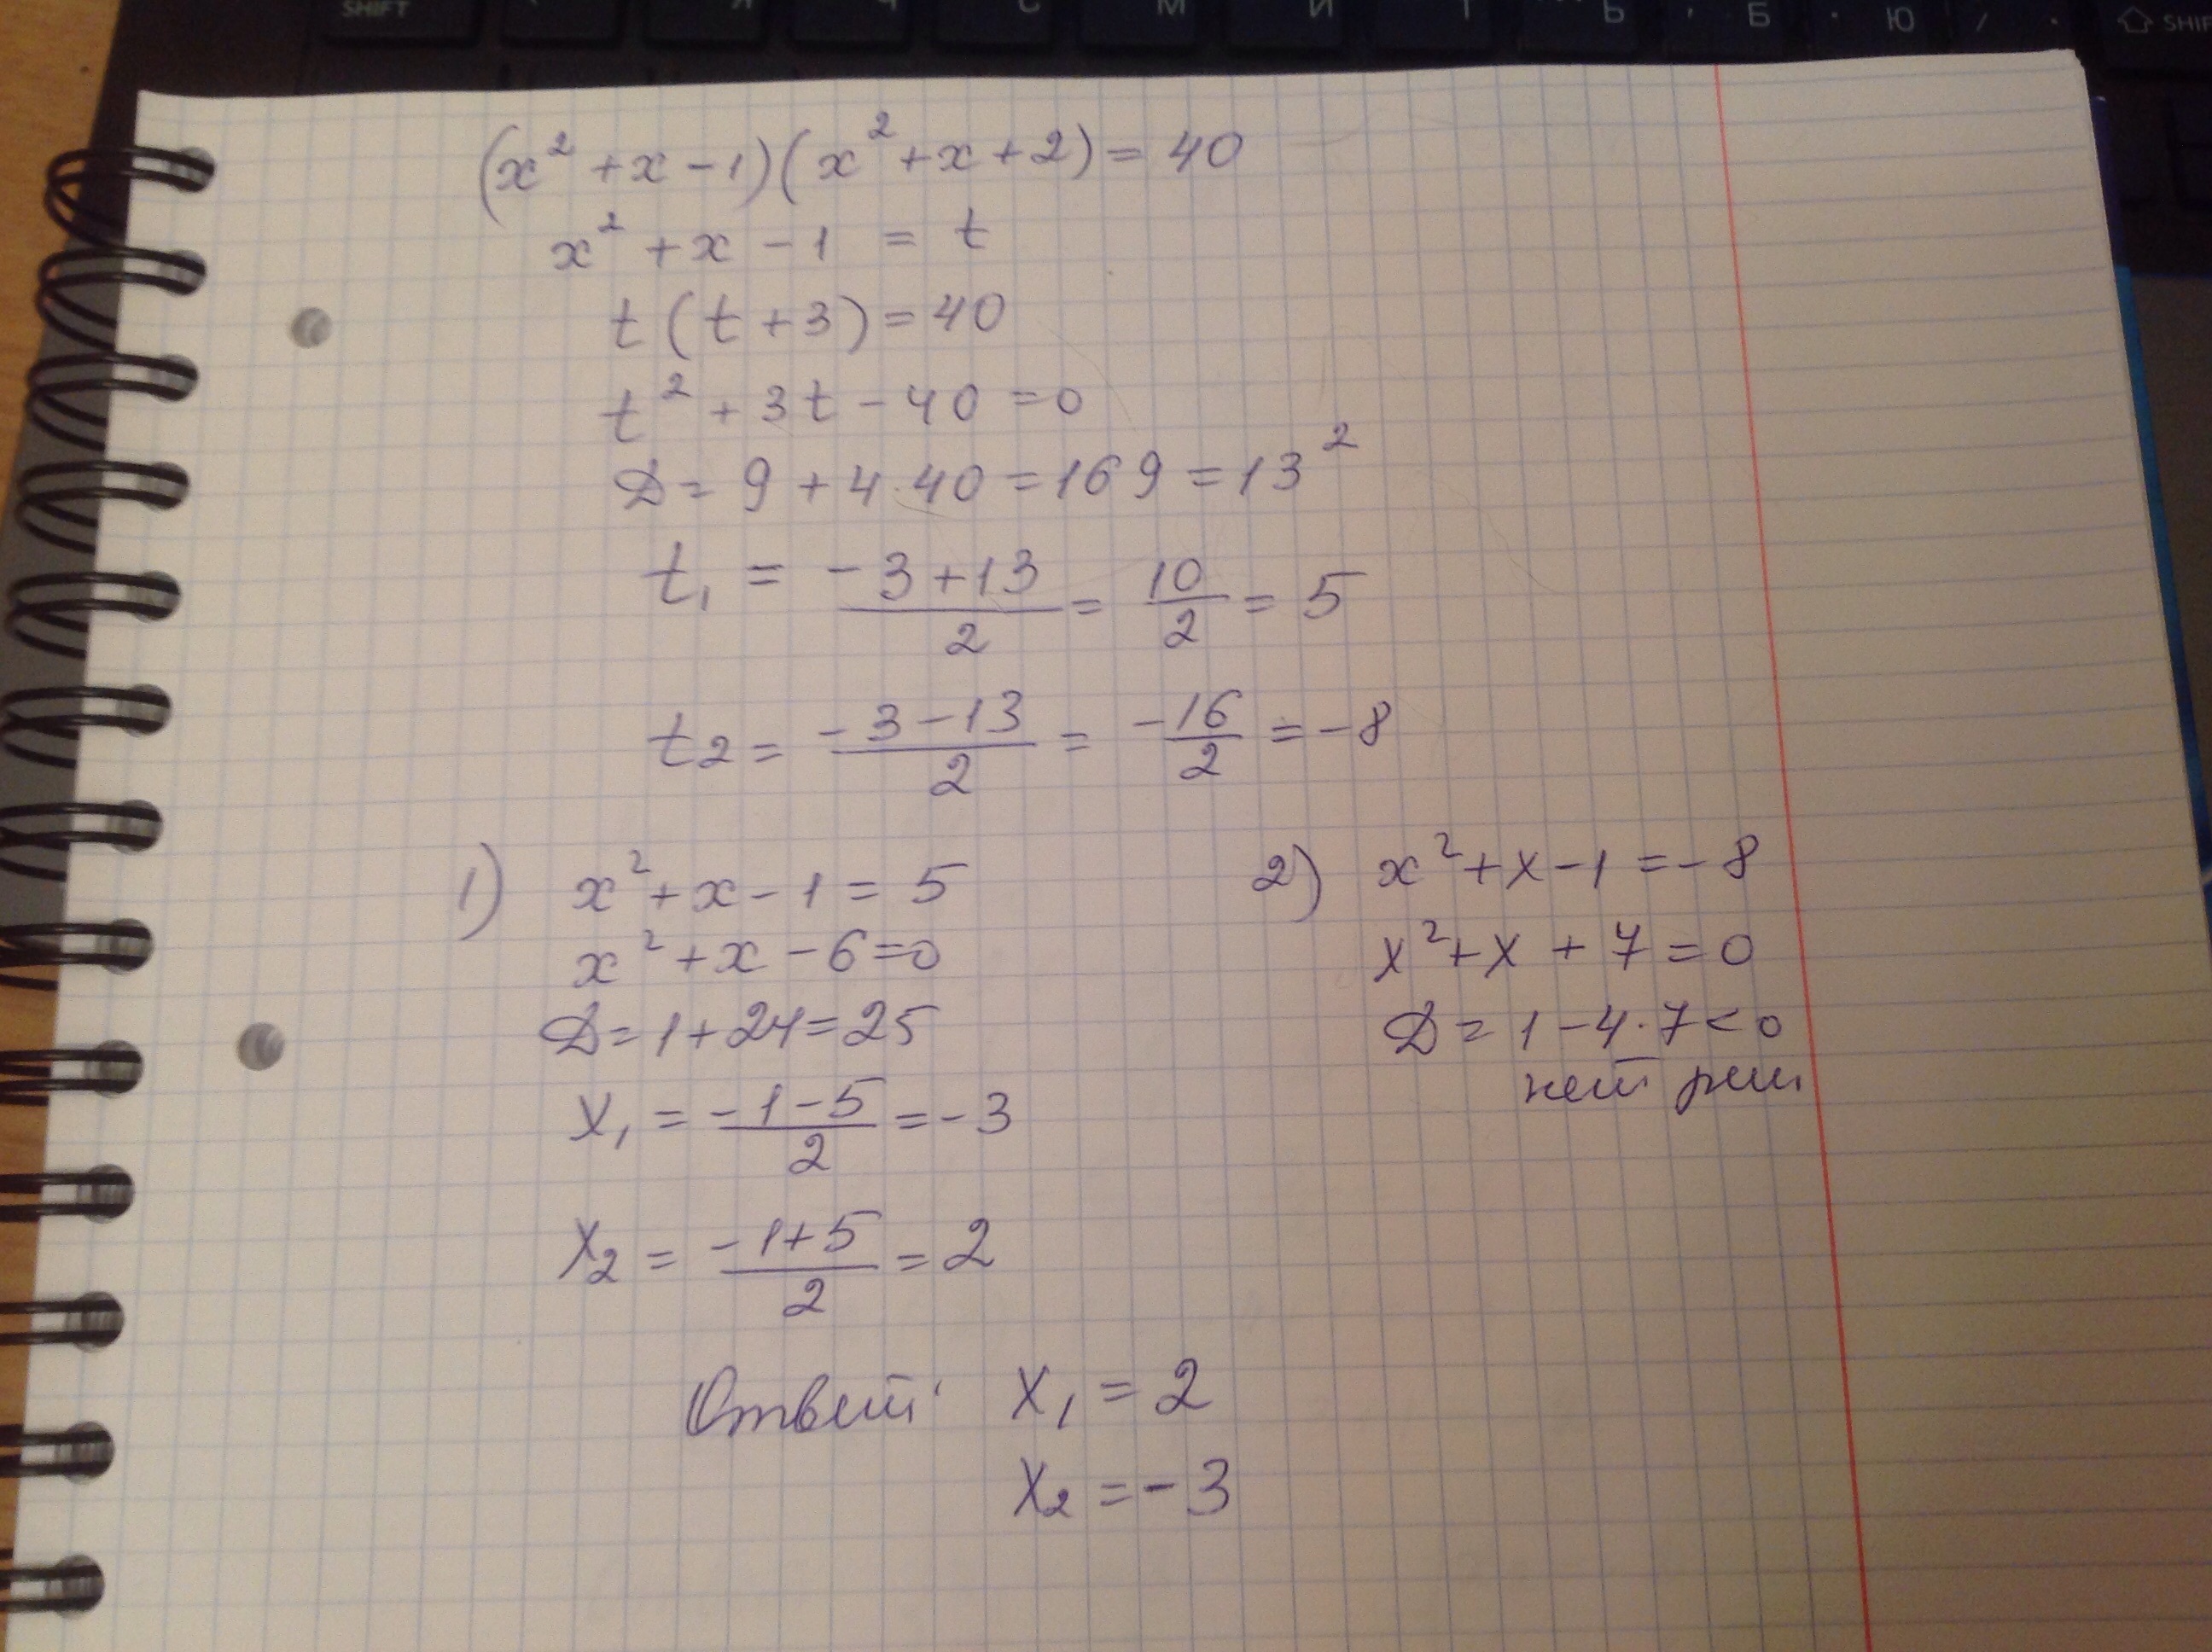 SHIFT Я Ч С М И Т Ь Б Ю / . SHIF
(x² + x - 1)(x² + x + 2) = 40
x² + x - 1 = t
t(t + 3) = 40
t² + 3t - 40 = 0
D = 9 + 4·40 = 169 = 13²
t₁ = (-3 + 13)/2 = 10/2 = 5
t₂ = (-3 - 13)/2 = -16/2 = -8
1) x² + x - 1 = 5
x² + x - 6 = 0
D = 1 + 24 = 25
x₁ = (-1 - 5)/2 = -3
x₂ = (-1 + 5)/2 = 2
2) x² + x - 1 = -8
x² + x + 7 = 0
D = 1 - 4·7 < 0
нет реш
Ответ: x₁ = 2
x₂ = -3